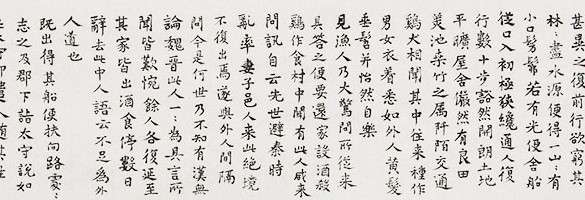 甚異之復前行欲窮其
林:盡水源便得一山:有
小口髣髴若有光便舍船
從口入初極狹纔通人復
行數十步豁然開朗土地
平曠屋舍儼然有良田
美池桑竹之属阡陌交通
雞犬相聞其中往来種作
男女衣着悉如外人黄髮
垂髫并怡然自樂
見漁人乃大驚問所從来
具答之便要還家設酒殺
雞作食村中聞有此人咸来
問訊自云先世避秦時
亂率妻子邑人来此絶境
不復出焉遂與外人間隔
問今是何世乃不知有漢無
論魏晉此人一:為具言所
聞皆歎惋餘人各復延至
其家皆出酒食停數日
辭去此中人語云不足為外
人道也
既出得其船便扶向路處:
志之及郡下詣太守說如